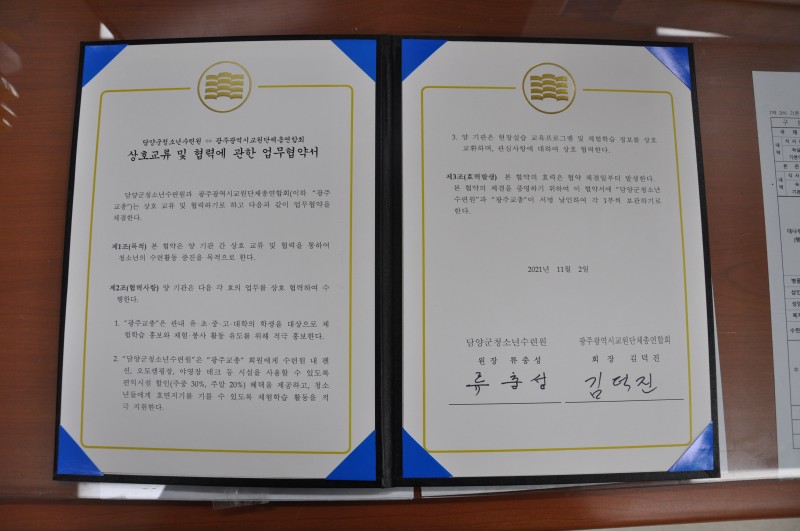 담양군청소년수련원 ↔ 광주광역시교원단체총연합회
상호교류 및 협력에 관한 업무협약서
담양군청소년수련원과 광주광역시교원단체총연합회(이하 "광주
교총")는 상호 교류 및 협력하기로 하고 다음과 같이 업무협약을
체결한다.
제1조(목적) 본 협약은 양 기관 간 상호 교류 및 협력을 통하여
청소년의 수련활동 증진을 목적으로 한다.
제2조(협력사항) 양 기관은 다음 각 호의 업무를 상호 협력하여 수
행한다.
1. "광주교총"은 관내 유·초·중·고·대학의 학생을 대상으로 체
험학습 홍보와 체험·봉사 활동 유도를 위해 적극 홍보한다.
2. "담양군청소년수련원"은 "광주교총" 회원에게 수련원 내 펜
션, 오토캠핑장, 야영장 데크 등 시설을 사용할 수 있도록
편의시설 할인(주중 30%, 주말 20%) 혜택을 제공하고, 청소
년들에게 호연지기를 기를 수 있도록 체험학습 활동을 적
극 지원한다.
3. 양 기관은 현장실습 교육프로그램 및 체험학습 정보를 상호
교환하며, 관심사항에 대하여 상호 협력한다.
제3조(효력발생) 본 협약의 효력은 협약 체결일부터 발생한다.
본 협약의 체결을 증명하기 위하여 이 협약서에 "담양군청소년
수련원"과 "광주교총"이 서명 날인하여 각 1부씩 보관하기로
한다.
2021년 11월 2일
담양군청소년수련원 광주광역시교원단체총연합회
원 장 류 충 성 회 장 김 덕 진
류 충 성 김 덕 진